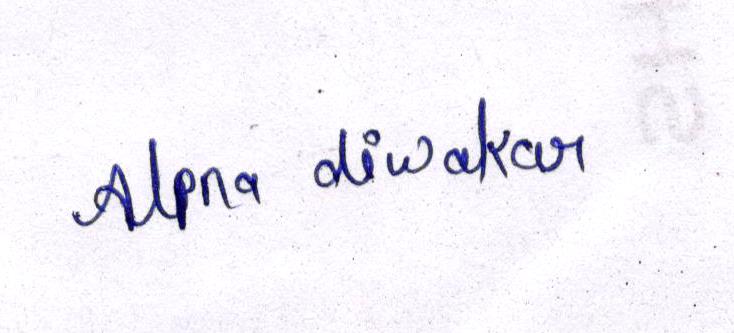 Alpna diwakar